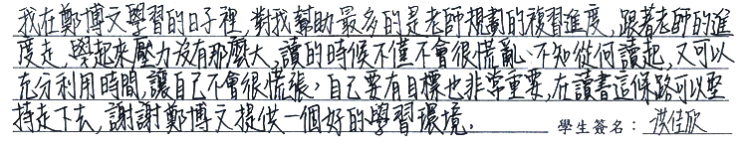 我在鄭博文學習的日子裡,對我幫助最多的是老師規劃的複習進度,跟著老師的進
度走,學起來壓力沒有那麼大,讀的時候不僅不會很慌亂、不知從何讀起,又可以
充分利用時間,讓自己不會很慌張,自己要有目標也非常重要,在讀書這條路可以堅
持走下去,謝謝鄭博文提供一個好的學習環境。 學生簽名:洪佳欣